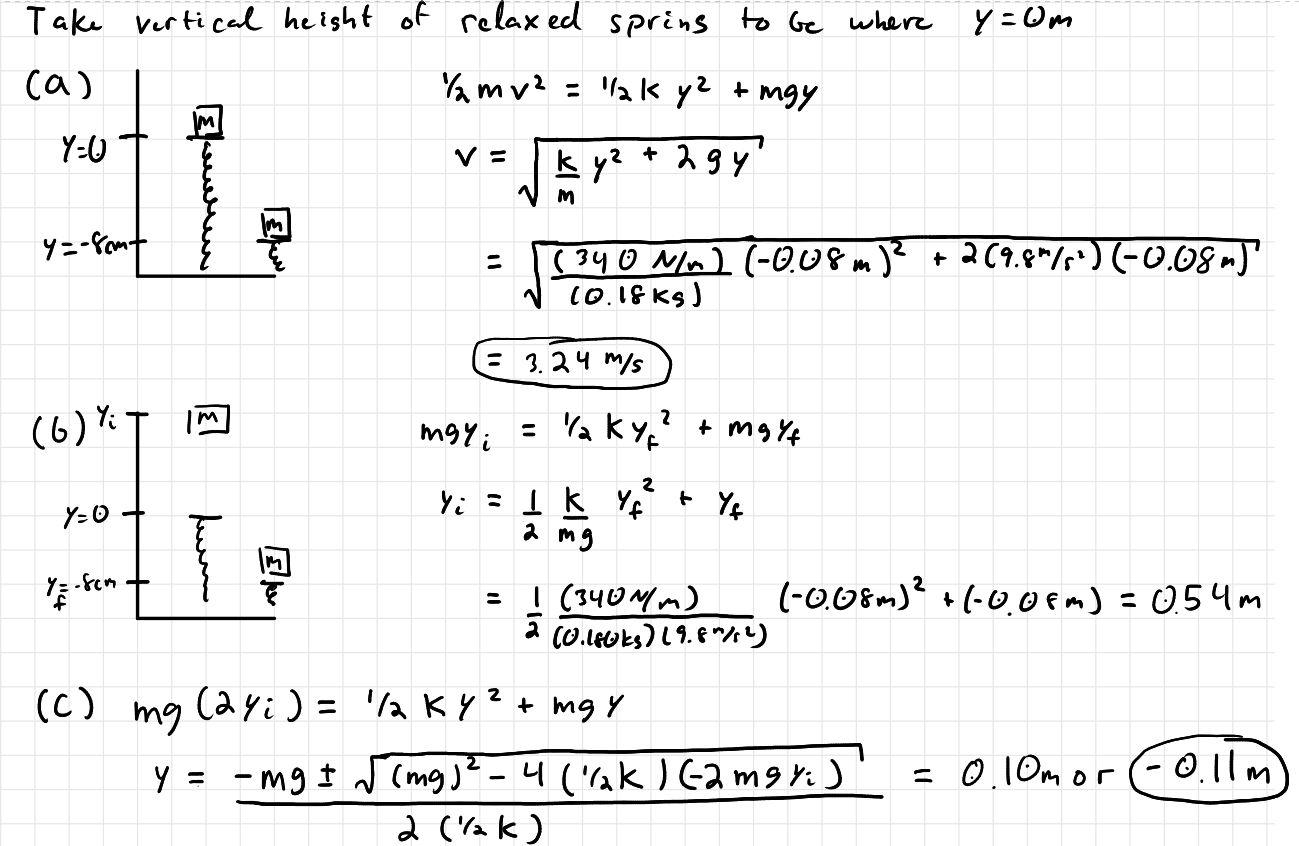 Take vertical height of relaxed spring to be where y=0m
(a) m ½ m v² = ½ k y² + mgy
y=0 v = √( k/m y² + 2 g y )
y=-8cm m = √( (340 N/m)/(0.18 kg) (-0.08 m)² + 2(9.8 m/s²)(-0.08 m) )
= 3.24 m/s
(b) yᵢ m mgyᵢ = ½ k y_f² + mgy_f
y=0 yᵢ = 1/2 k/mg y_f² + y_f
y_f=-8cm m = 1/2 (340 N/m)/((0.180 kg)(9.8 m/s²)) (-0.08m)² + (-0.08m) = 0.54 m
(c) mg (2yᵢ) = ½ k y² + mgy
y = (-mg ± √( (mg)² - 4 (½k)(-2mgyᵢ) ))/(2 (½k)) = 0.10m or -0.11m